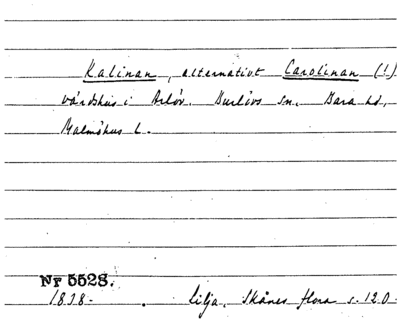 Kalinan, alternativt Carolinan (!)
värdshus i Arlöv. Burlövs sn. Bara hd,
Malmöhus l.
Nr 5528.
1838. Lilja. Skånes flora s. 120.